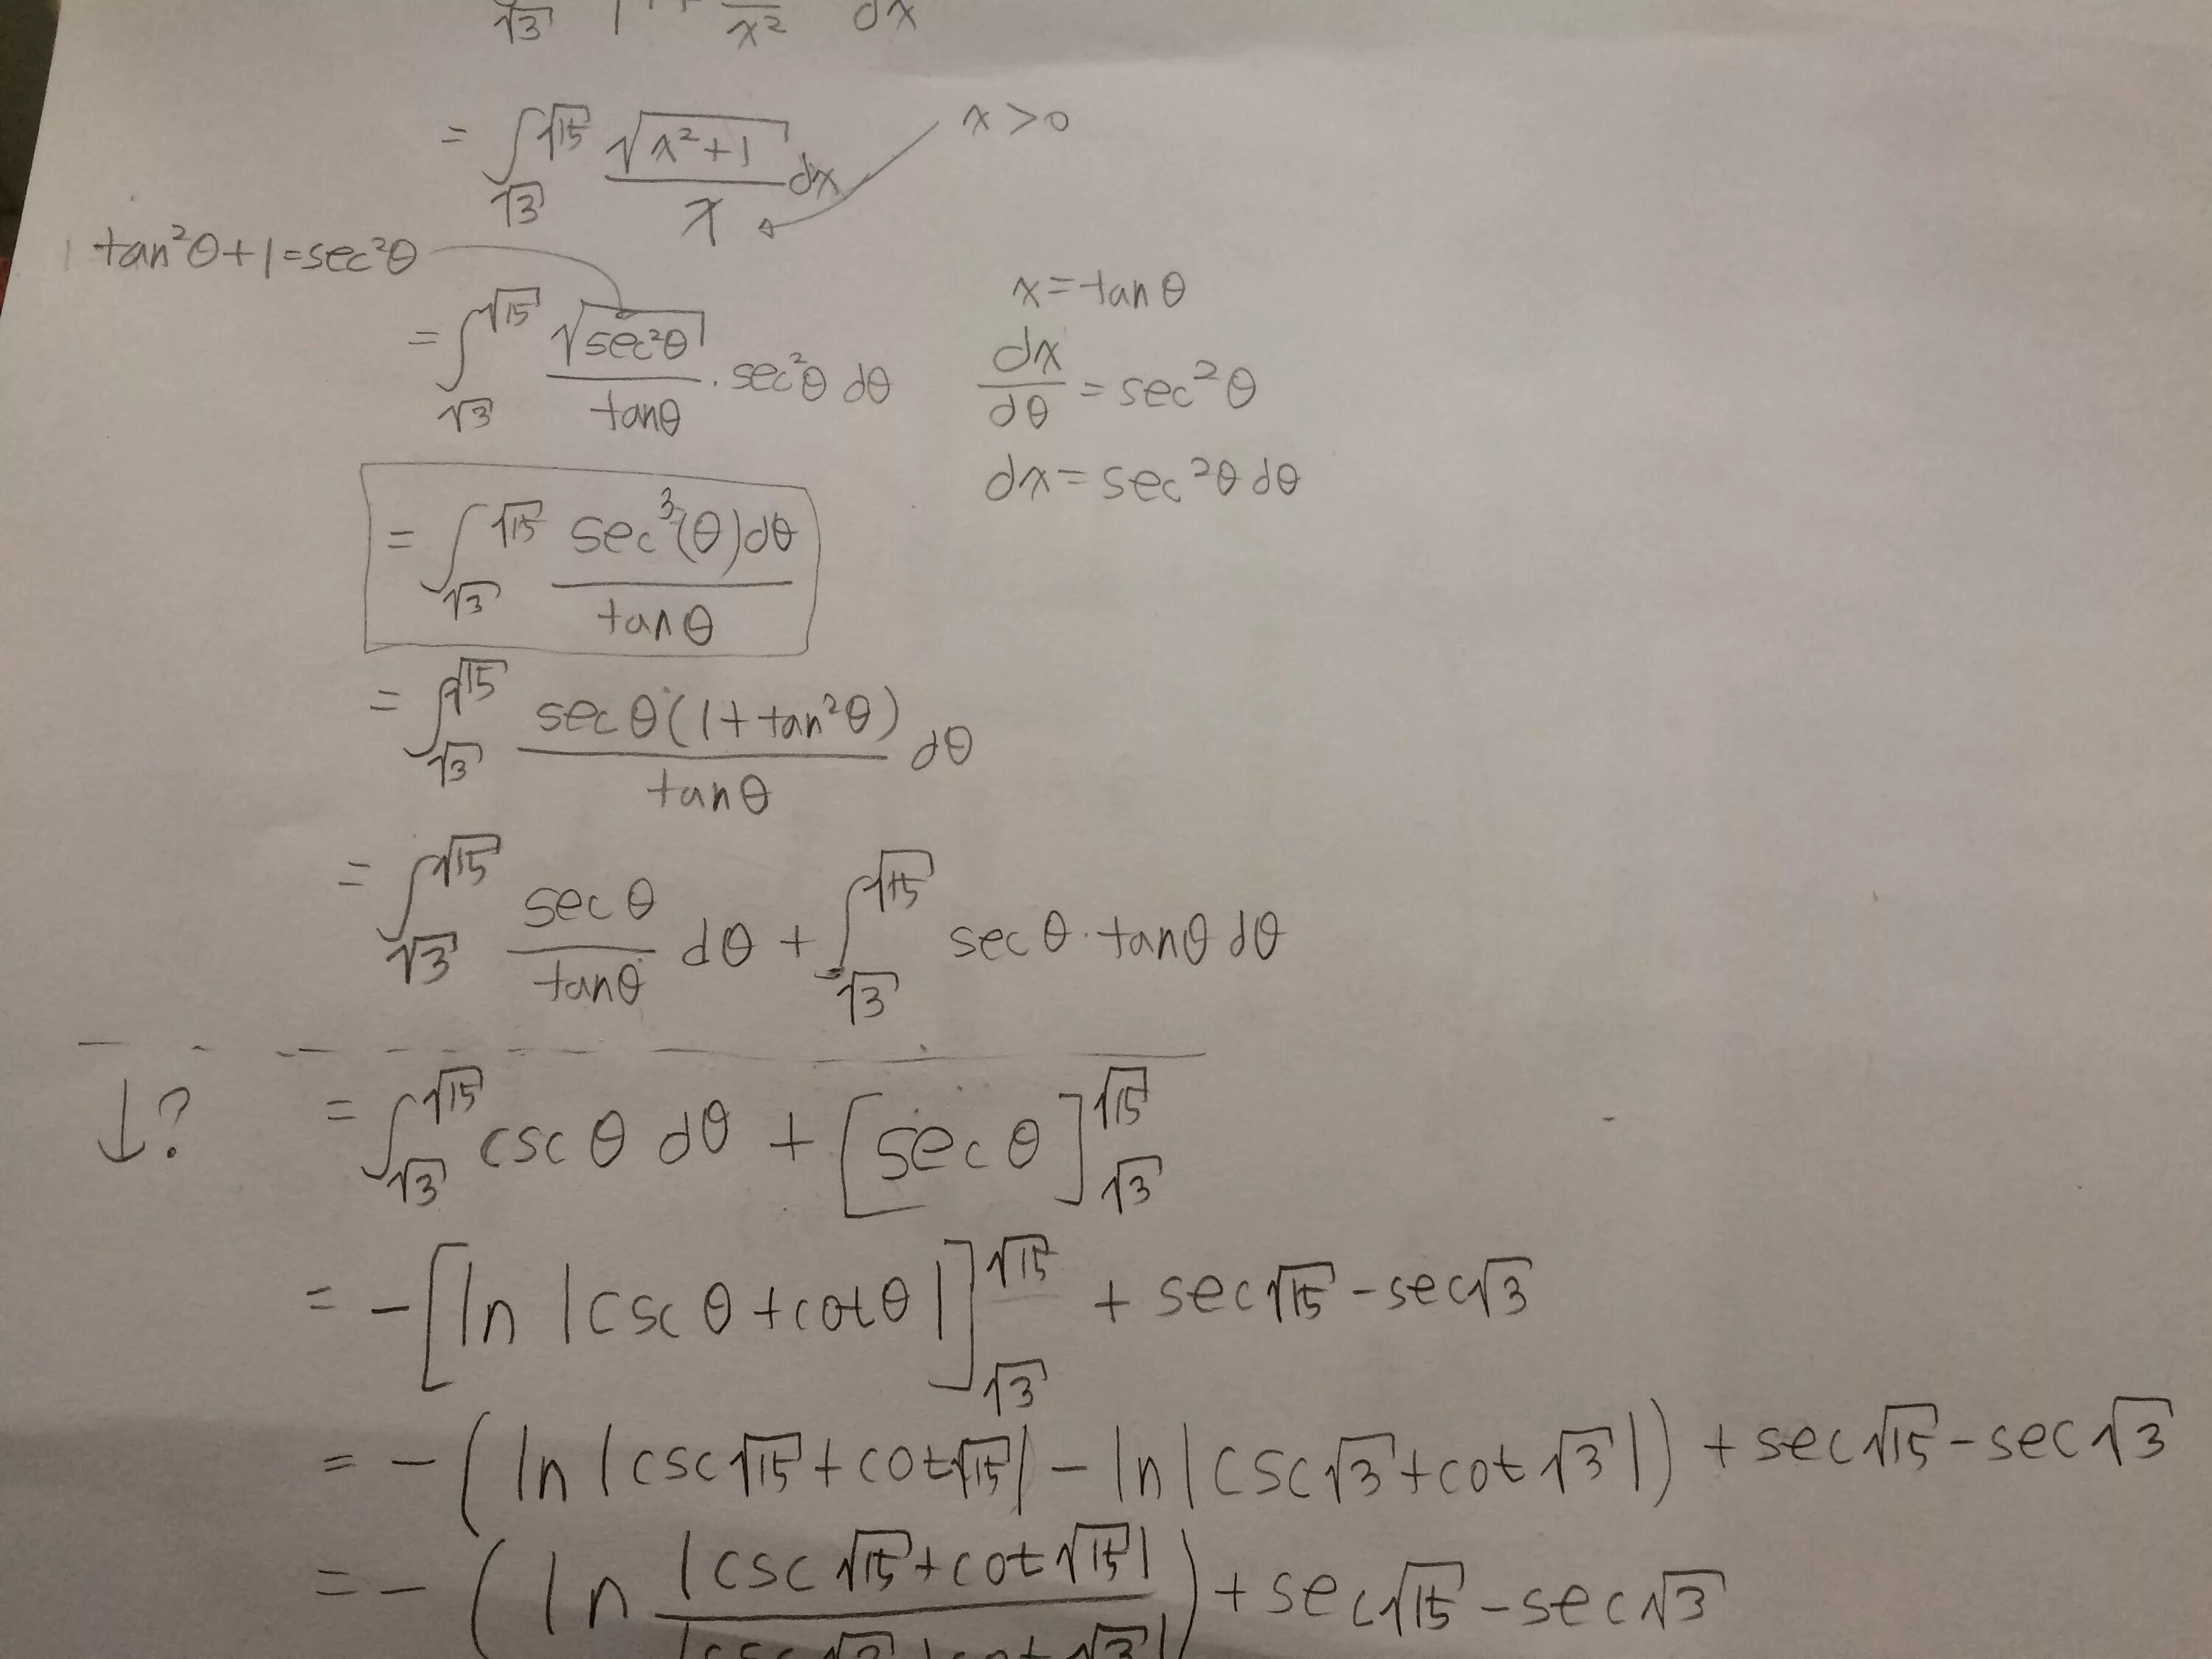 √3 1 + x² dx
= ∫_√3^√15 √(x²+1)/x dx x>0
tan²θ+1=sec²θ
x=tanθ
= ∫_√3^√15 √(sec²θ)/tanθ · sec²θ dθ
dx/dθ = sec²θ
dx = sec²θ dθ
= ∫_√3^√15 sec³(θ)dθ/tanθ
= ∫_√3^√15 secθ(1+tan²θ)/tanθ dθ
= ∫_√3^√15 secθ/tanθ dθ + ∫_√3^√15 secθ·tanθ dθ
↓? = ∫_√3^√15 cscθ dθ + [secθ]_√3^√15
= -[ln|cscθ+cotθ|]_√3^√15 + sec√15-sec√3
= -(ln|csc√15+cot√15|-ln|csc√3+cot√3|)+sec√15-sec√3
= -(ln |csc√15+cot√15|/|csc√3+cot√3|)+sec√15-sec√3